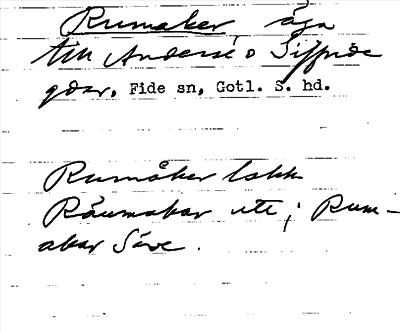 Rumaker, äga
till Anderse o Siffride
gdar, Fide sn, Gotl. S. hd.
Rumåker lakk
Råumakar ute; Rum-
akar Säve.